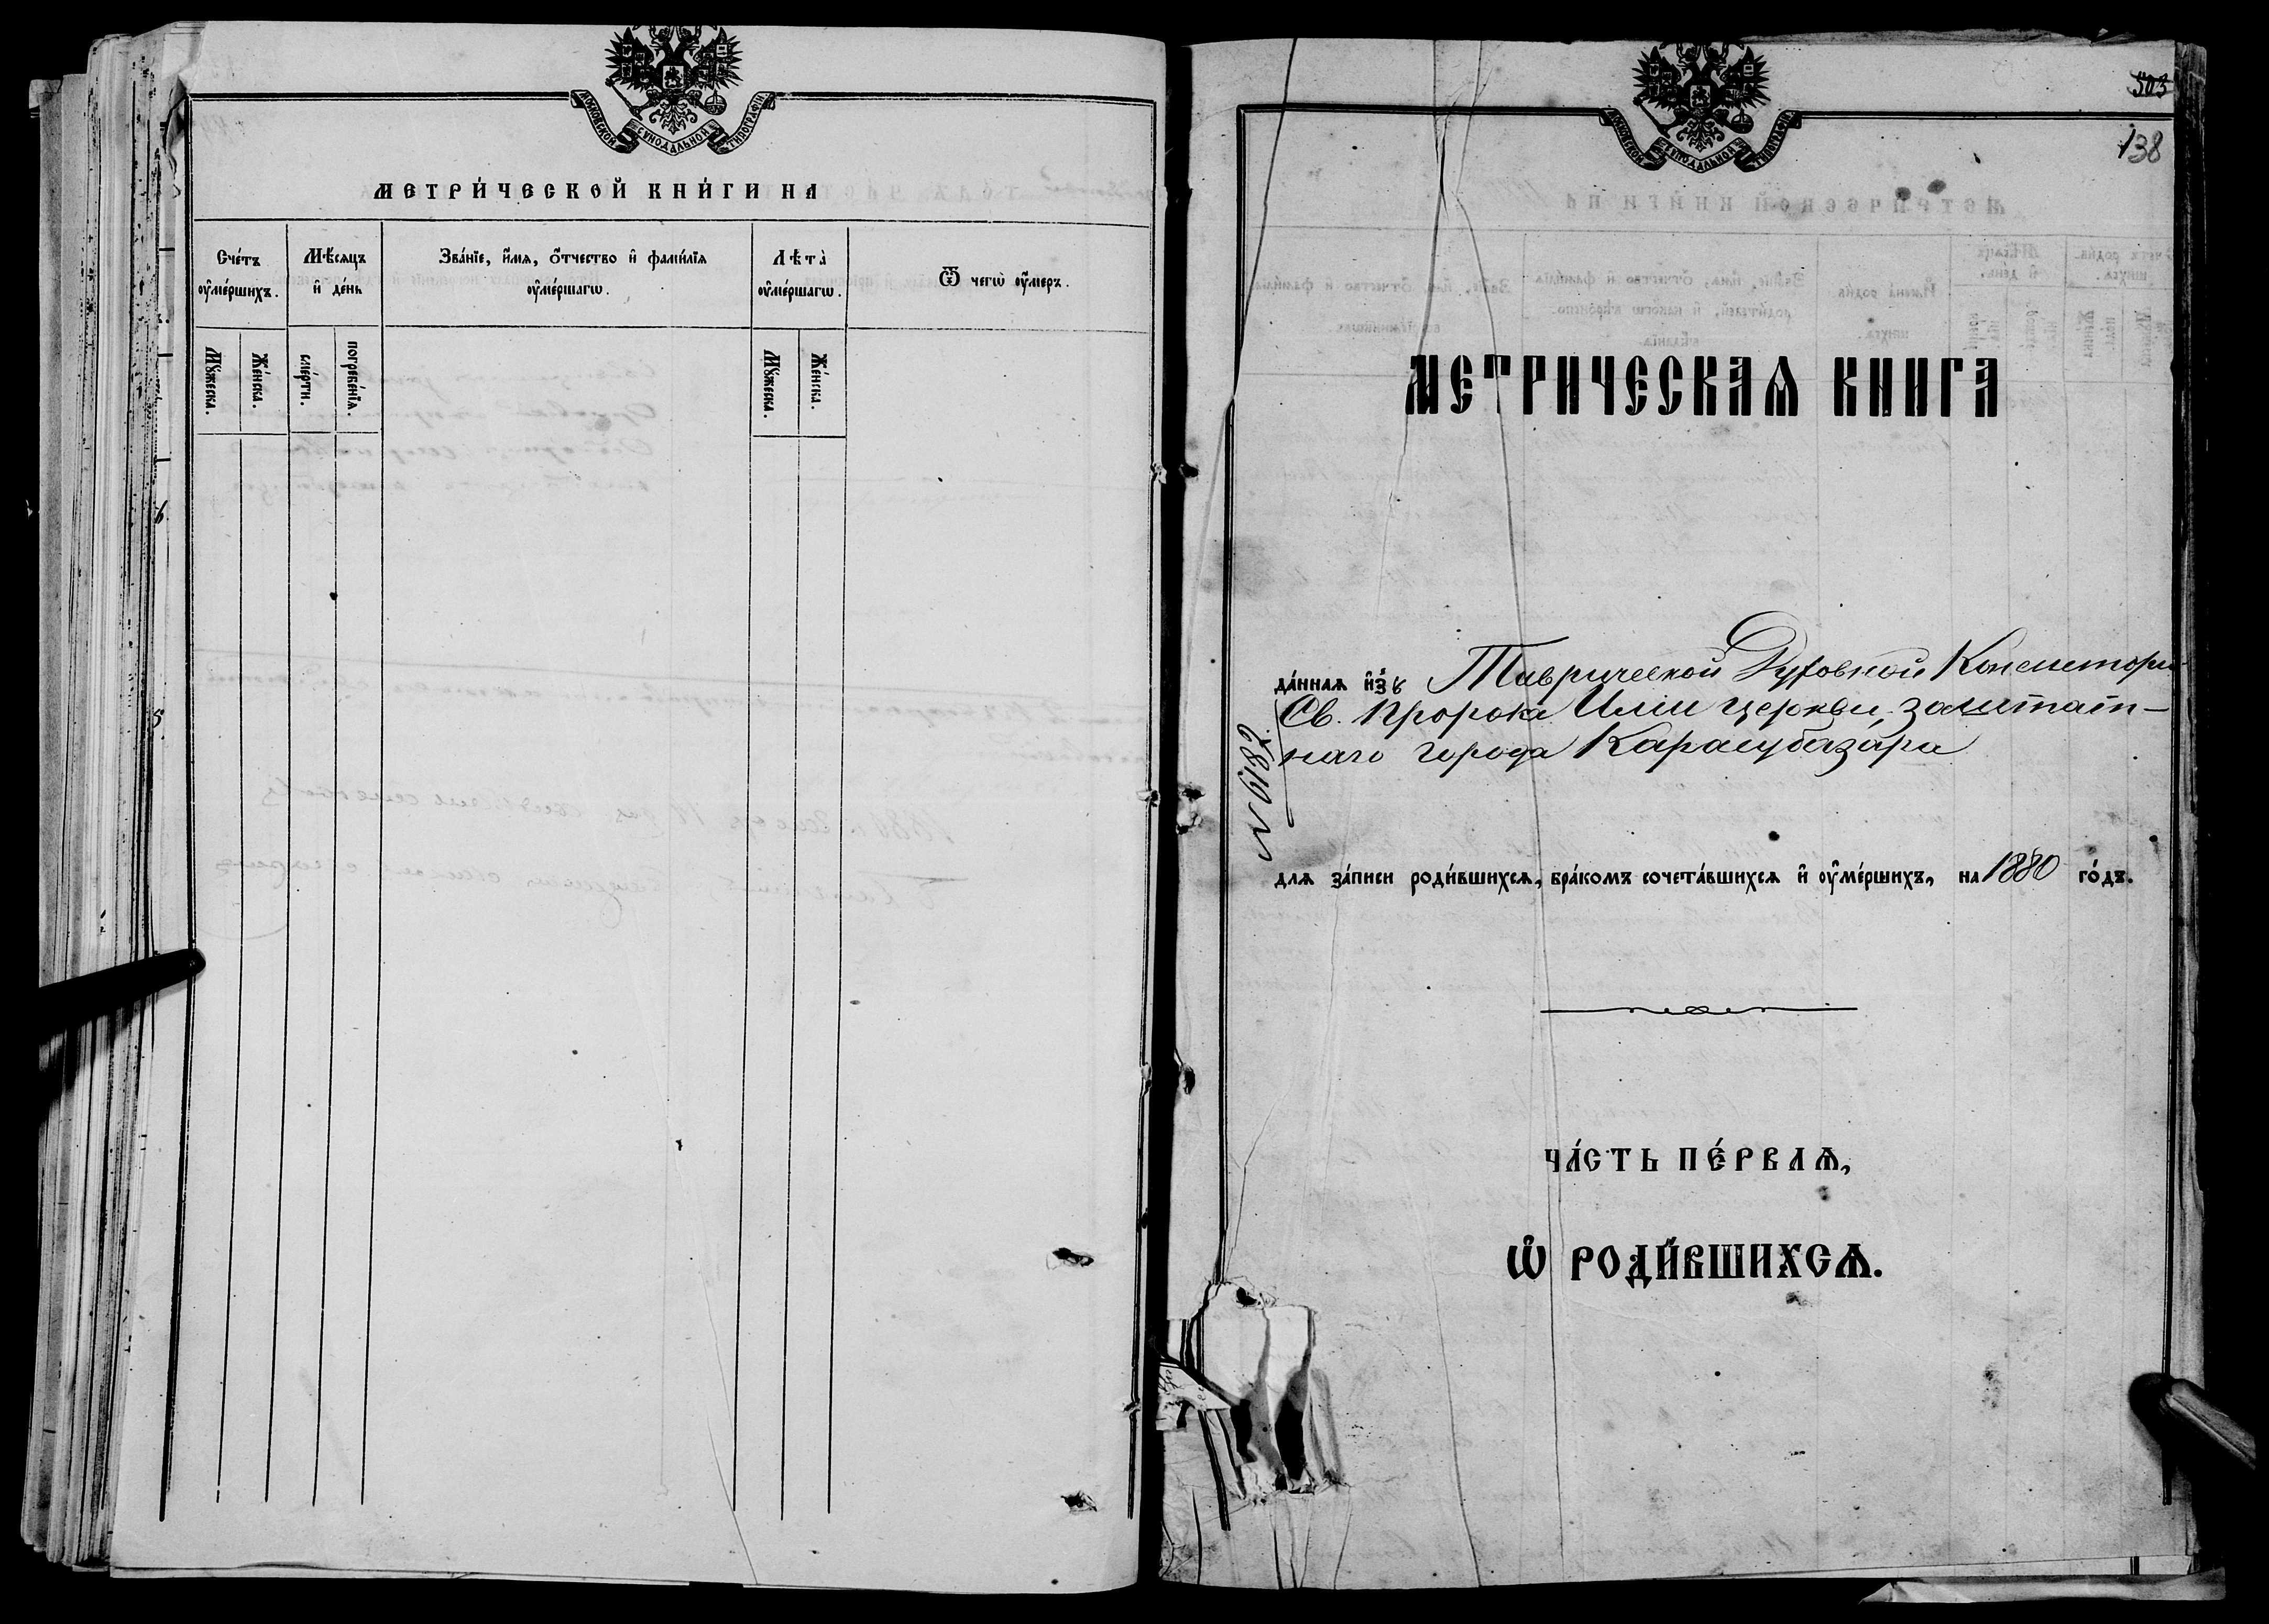 МОСКОВСКОЙ СѴНОДАЛЬНОЙ ТИПОГРАФІИ
МЕТРИ́ЧЕСКОЙ КНИ́ГИ НА
Сче́тъ ᲂу҆ме́ршихъ.
Мѣ́сяцъ и҆ де́нь
Зва́нїе, и҆́мѧ, ѻ҆́тчество и҆ фами́лїѧ ᲂу҆ме́ршагѡ.
Лѣта̀ ᲂу҆ме́ршагѡ.
Ѿ чегѡ̀ ᲂу҆́меръ.
Мꙋ́жеска.
Же́нска.
сме́рти.
погребе́нїѧ.
Мꙋ́жеска.
Же́нска.
503
138
МОСКОВСКОЙ СѴНОДАЛЬНОЙ ТИПОГРАФІИ
МЕТРИЧЕСКАѦ КНИГА
да́ннаѧ и҆зъ Таврической Духовной Консистори
Св. Пророка Иліи церкви, заштат-
наго города Карасубазара
для за́писи роди́вшихсѧ, бра́комъ сочета́вшихсѧ и҆ ᲂу҆ме́ршихъ, на 1880 го́дъ.
ЧА́СТЬ ПЕ́РВАѦ,
Ѡ҆ РОДИ́ВШИХСѦ.